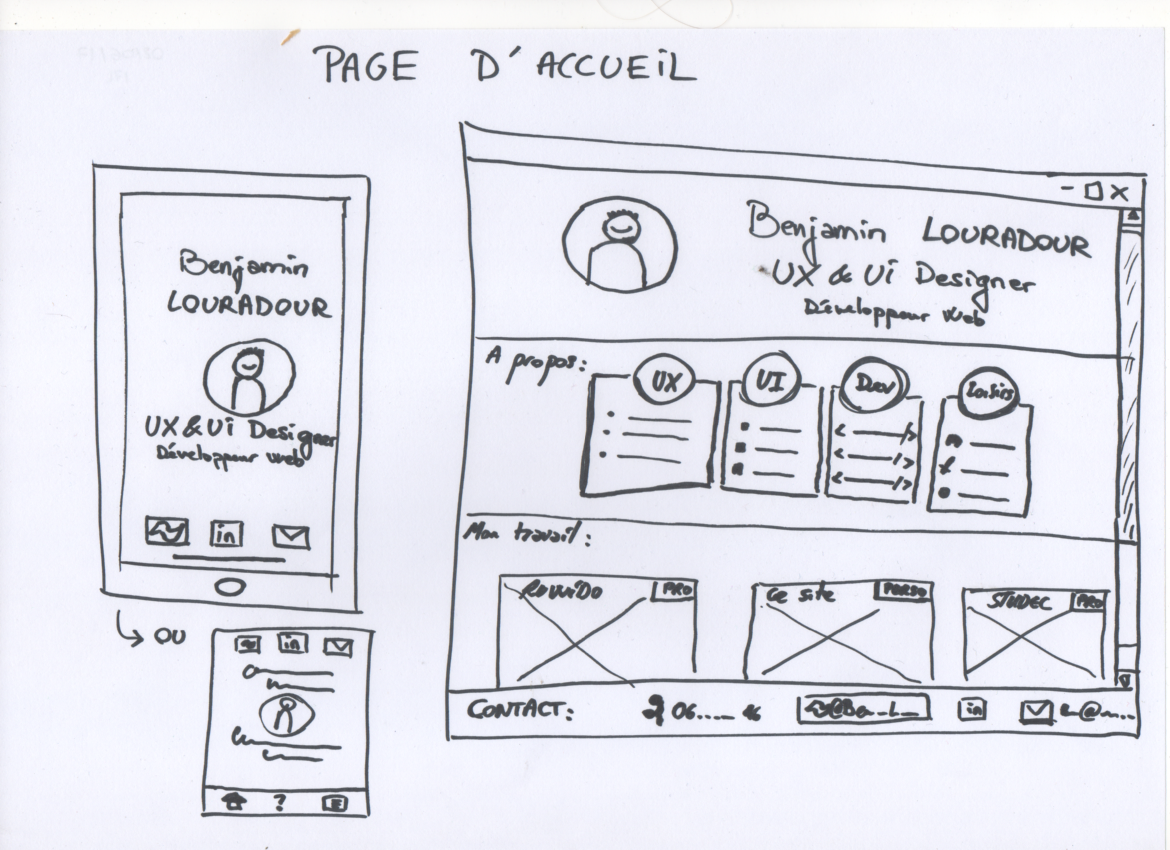 PAGE D'ACCUEIL
Benjamin
LOURADOUR
UX & Ui Designer
Développeur web
in
OU
in
?
Benjamin LOURADOUR
UX & Ui Designer
Développeur web
A propos:
UX
UI
Dev
Loisirs
Mon travail:
PRO
Ce site
PERSO
STUDEC
PRO
CONTACT:
06..... 
in